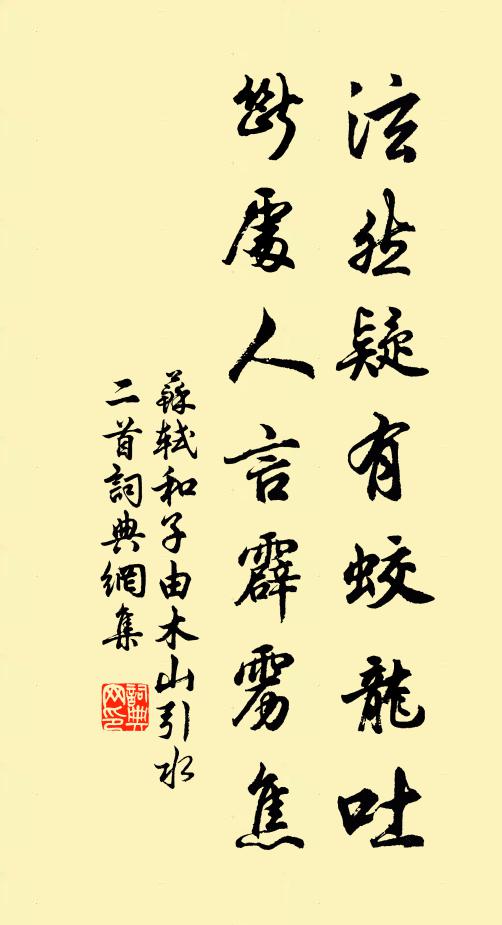 泫然疑有蛟龍吐
斷處人言霹靂焦
蘇軾和子由木山引水
二首詞典網集
詞典
网印